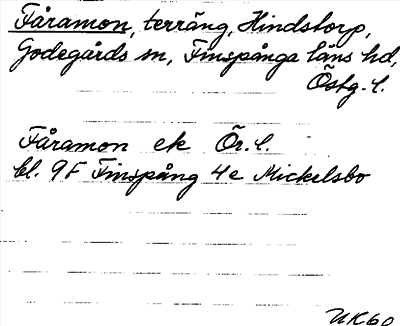 Fåramon, terräng, Hindstorp,
Godegårds sn, Finspånga läns hd,
Östg. l.
Fåramon ek Ör. l.
bl. 9F Finspång 4e Mickelsbo
UK60